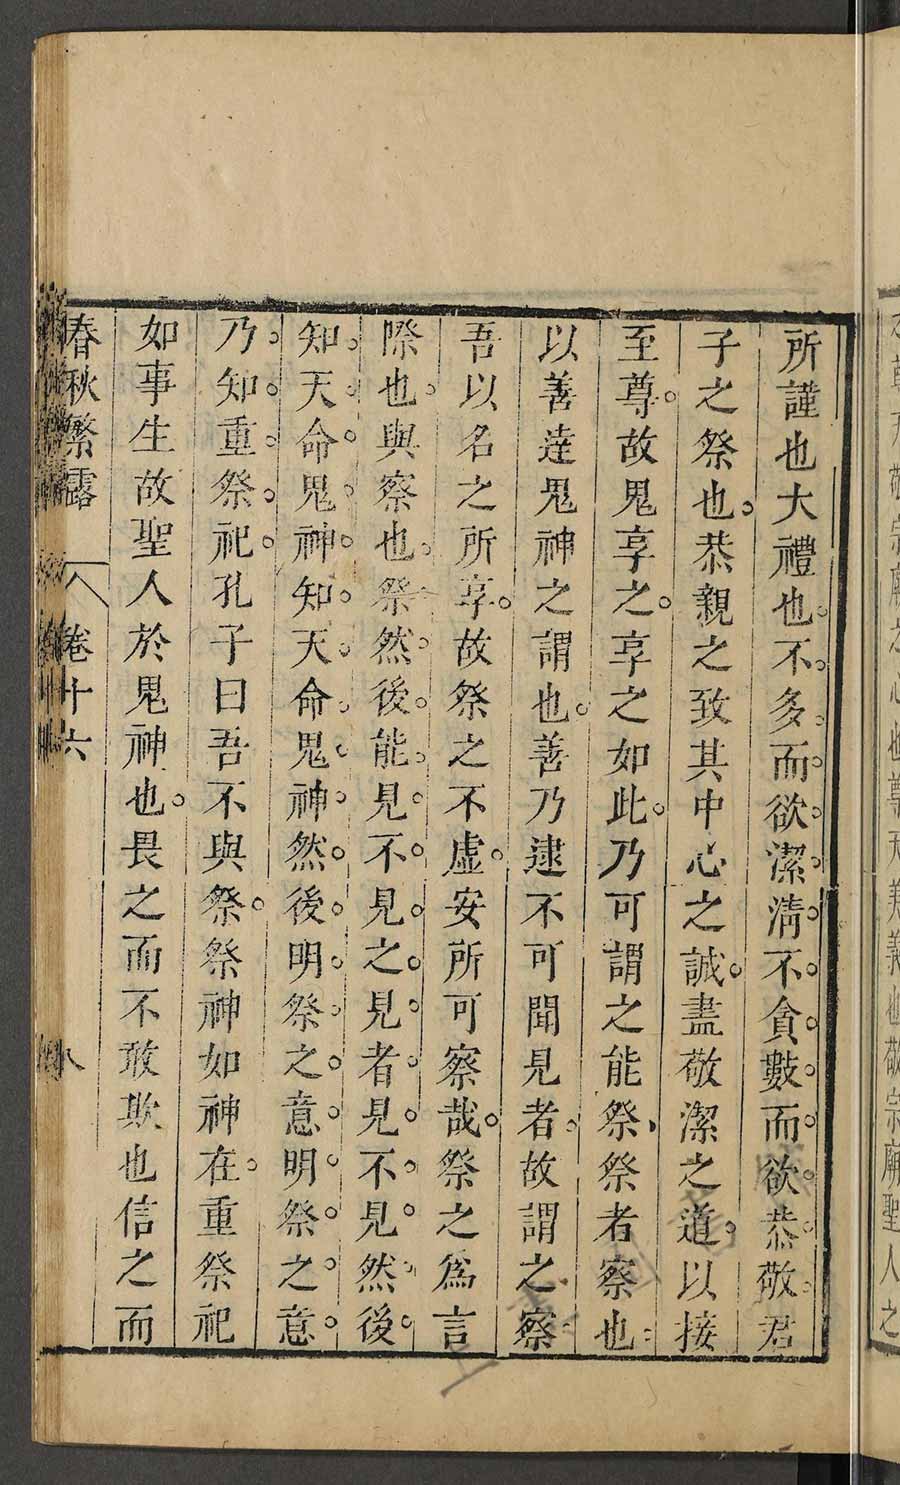 所謹也大禮也不多而欲潔淸不貪數而欲恭敬君
子之祭也恭親之致其中心之誠盡敬潔之道以接
至尊故鬼享之享之如此乃可謂之能祭祭者察也
以善逹鬼神之謂也善乃逮不可聞見者故謂之察
吾以名之所享故祭之不虛安所可察哉祭之爲言
際也與察也祭然後能見不見之見者見不見然後
知天命鬼神知天命鬼神然後明祭之意明祭之意
乃知重祭祀孔子曰吾不與祭祭神如神在重祭祀
如事生故聖人於鬼神也畏之而不敢欺也信之而
春秋繁露 卷十六 八